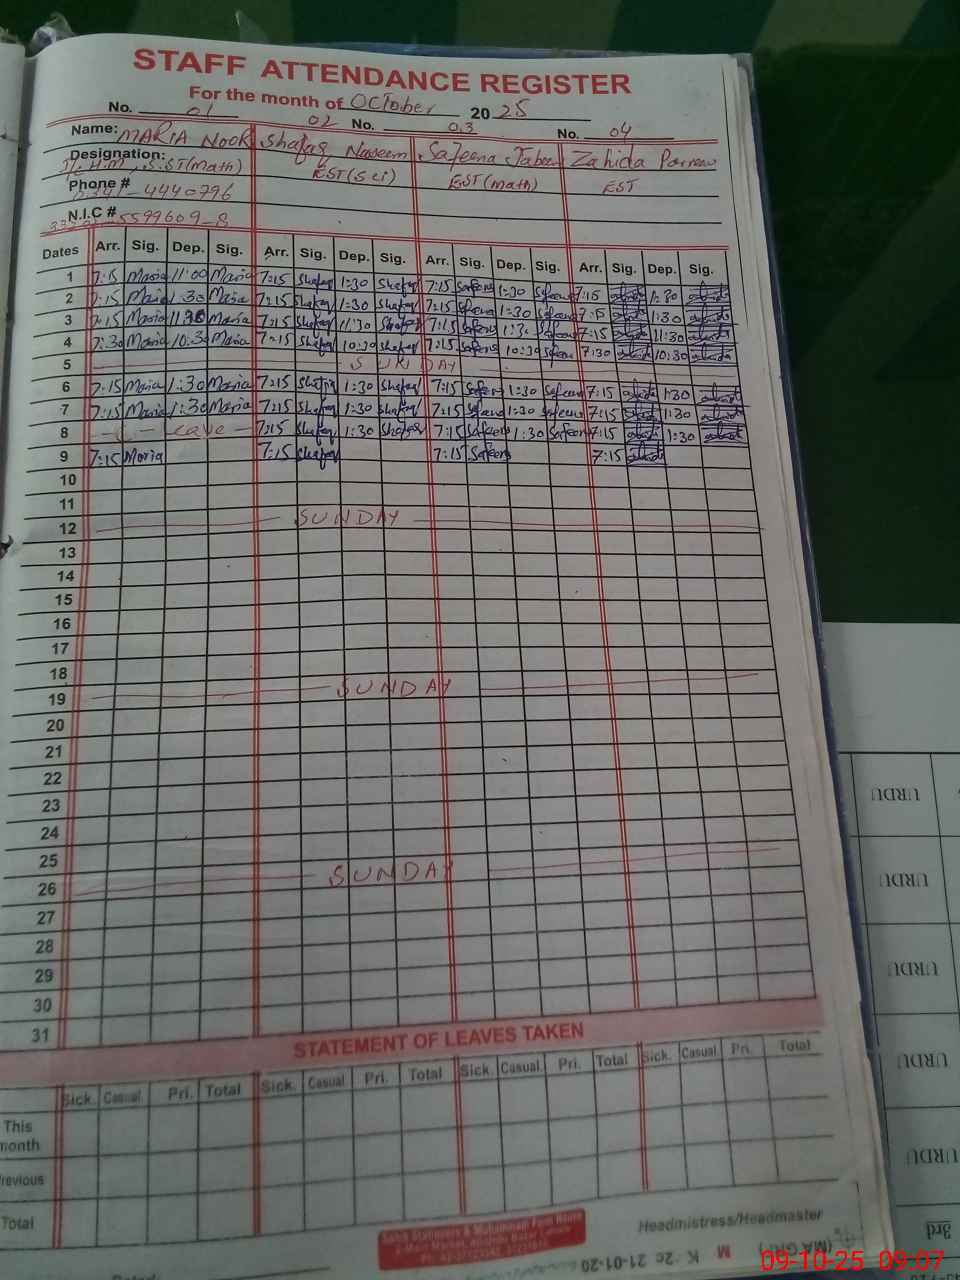 STAFF ATTENDANCE REGISTER
For the month of October 2025
No. 01 02 No. 03 No. 04
Name: MARIA NOOR Shafaq Naseem Safeena Jabeen Zahida Parveen
Designation: SST(Math) EST(Sci) EST(math) EST
Phone # 4440796
N.I.C # 5599609-8
Dates Arr. Sig. Dep. Sig. Arr. Sig. Dep. Sig. Arr. Sig. Dep. Sig. Arr. Sig. Dep. Sig.
1 7:15 Maria 11:00 Maria 7:15 Shafaq 1:30 Shafaq 7:15 Safeena 1:30 Safeena 7:15 1:30
2 7:15 Maria 1:30 Maria 7:15 Shafaq 1:30 Shafaq 7:15 Safeena 1:30 Safeena 7:15 1:30
3 7:15 Maria 11:30 Maria 7:15 Shafaq 11:30 Shafaq 7:15 Safeena Safeena 7:15 11:30
4 7:30 Maria 10:30 Maria 7:15 Shafaq 10:30 Shafaq 7:15 Safeena 10:30 Safeena 7:30 10:30
5 SUNDAY
6 7:15 Maria 1:30 Maria 7:15 Shafaq 1:30 Shafaq 7:15 Safeena 1:30 Safeena 7:15 1:30
7 7:15 Maria 1:30 Maria 7:15 Shafaq 1:30 Shafaq 7:15 Safeena 1:30 Safeena 7:15 1:30
8 Leave 7:15 Shafaq 1:30 Shafaq 7:15 Safeena 1:30 Safeena 7:15 1:30
9 7:15 Maria 7:15 Shafaq 7:15 Safeena 7:15
10
11
12 SUNDAY
13
14
15
16
17
18
19 SUNDAY
20
21
22
23
24
25
26 SUNDAY
27
28
29
30
31
STATEMENT OF LEAVES TAKEN
Sick. Casual. Pri. Total Sick. Casual Pri. Total Sick. Casual. Pri. Total Sick. Casual Pri. Total
This month
Previous
Total
Headmistress/Headmaster
URDU
URDU
URDU
URDU
URDU
3rd
09-10-25 09:07